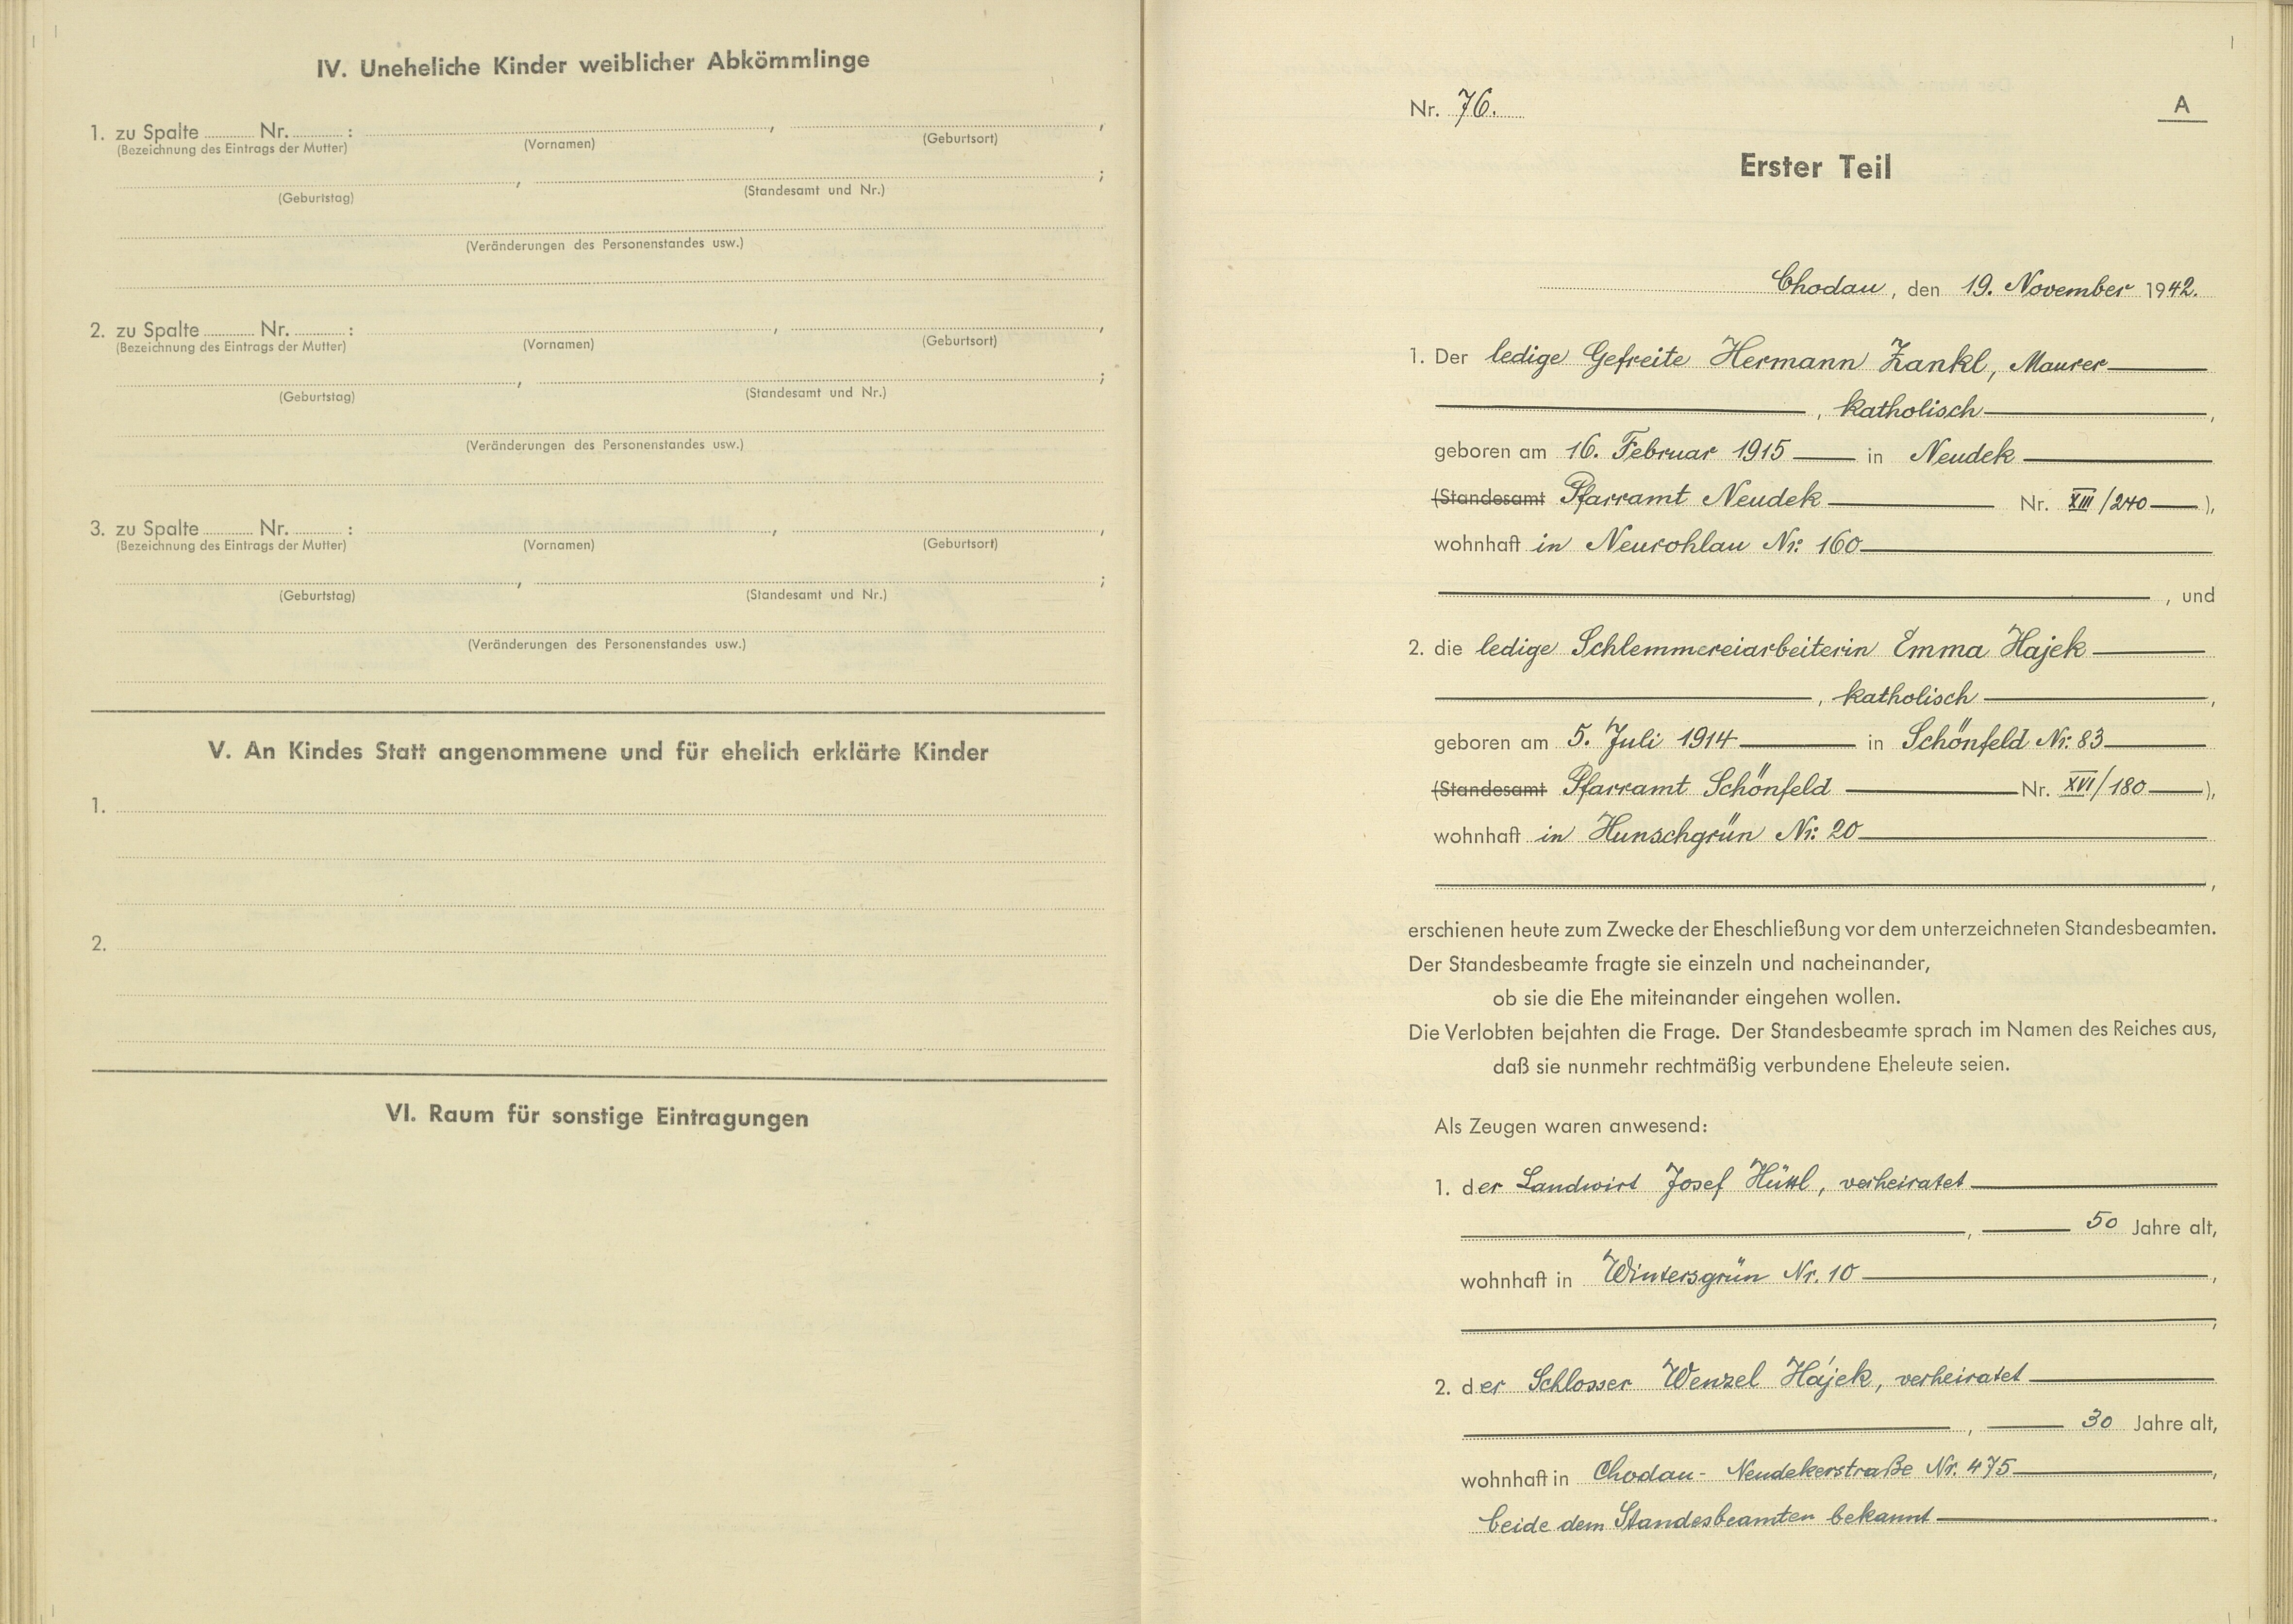 IV. Uneheliche Kinder weiblicher Abkömmlinge
1. zu Spalte ........ Nr. ........ : , ,
(Bezeichnung des Eintrags der Mutter) (Vornamen) (Geburtsort)
, ;
(Geburtstag) (Standesamt und Nr.)
(Veränderungen des Personenstandes usw.)
2. zu Spalte ........ Nr. ........ : , ,
(Bezeichnung des Eintrags der Mutter) (Vornamen) (Geburtsort)
, ;
(Geburtstag) (Standesamt und Nr.)
(Veränderungen des Personenstandes usw.)
3. zu Spalte ........ Nr. ........ : , ,
(Bezeichnung des Eintrags der Mutter) (Vornamen) (Geburtsort)
, ;
(Geburtstag) (Standesamt und Nr.)
(Veränderungen des Personenstandes usw.)
V. An Kindes Statt angenommene und für ehelich erklärte Kinder
1.
2.
VI. Raum für sonstige Eintragungen
Nr. 76. A
Erster Teil
Chodau, den 19. November 1942.
1. Der ledige Gefreite Hermann Zankl, Maurer
, katholisch,
geboren am 16. Februar 1915 in Neudek
(Standesamt Pfarramt Neudek Nr. XIII/240),
wohnhaft in Neurohlau Nr: 160
, und
2. die ledige Schlemmereiarbeiterin Emma Hajek
, katholisch,
geboren am 5. Juli 1914 in Schönfeld Nr: 83
(Standesamt Pfarramt Schönfeld Nr. XVI/180),
wohnhaft in Hunschgrün Nr: 20
,
erschienen heute zum Zwecke der Eheschließung vor dem unterzeichneten Standesbeamten.
Der Standesbeamte fragte sie einzeln und nacheinander,
ob sie die Ehe miteinander eingehen wollen.
Die Verlobten bejahten die Frage. Der Standesbeamte sprach im Namen des Reiches aus,
daß sie nunmehr rechtmäßig verbundene Eheleute seien.
Als Zeugen waren anwesend:
1. der Landwirt Josef Hüttl, verheiratet
, 50 Jahre alt,
wohnhaft in Wintersgrün Nr. 10,
,
2. der Schlosser Wenzel Hájek, verheiratet
, 30 Jahre alt,
wohnhaft in Chodau- Neudekerstraße Nr. 475,
beide dem Standesbeamten bekannt.